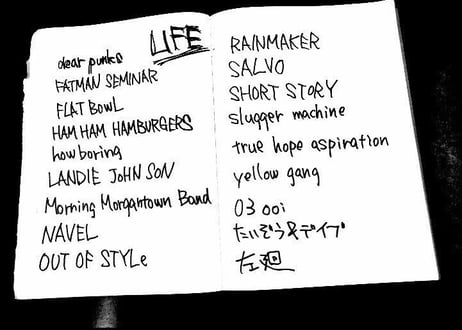 LIFE
dear punks
FATMAN SEMINAR
FLAT BOWL
HAM HAM HAMBURGERS
how boring
LANDIE JOHNSON
Morning Morgantown Band
NAVEL
OUT OF STYLe
RAINMAKER
SALVO
SHORT STORY
slugger machine
true hope aspiration
yellow gang
03 ooi
たいぞう&デイブ
左廻